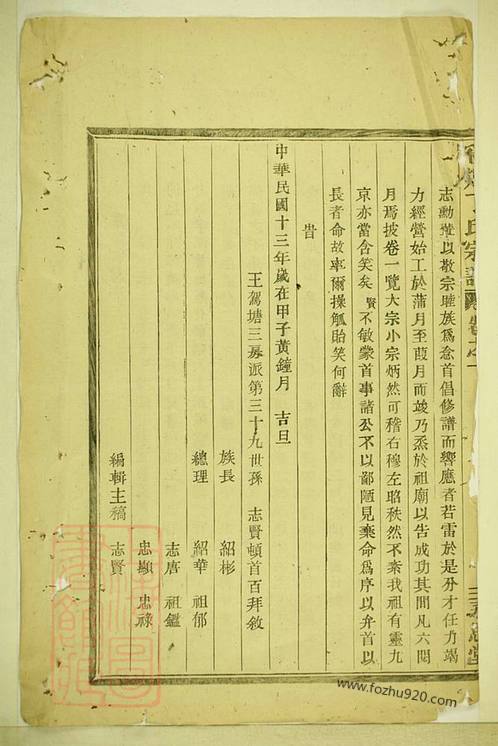 氏宗譜
志勳等以敬宗睦族爲念首倡修譜而響應者若雷於是分才任力竭
力經營始工於蒲月至葭月而竣乃烝於祖廟以告成功其間凡六閱
月焉披卷一覽大宗小宗炳然可稽右穆左昭秩然不紊我祖有靈九
京亦當含笑矣賢不敏蒙首事諸公不以鄙陋見棄命爲序以弁首以
長者命故率爾操觚貽笑何辭
旹
中華民國十三年歲在甲子黃鐘月 吉旦
王駕塘三房派第三十九世孫 志賢頓首百拜敘
族長 紹彬
總理 紹華 祖郁
志唐 祖鑑
忠顯 忠祿
編輯主稿 志賢
www.fozhu920.com